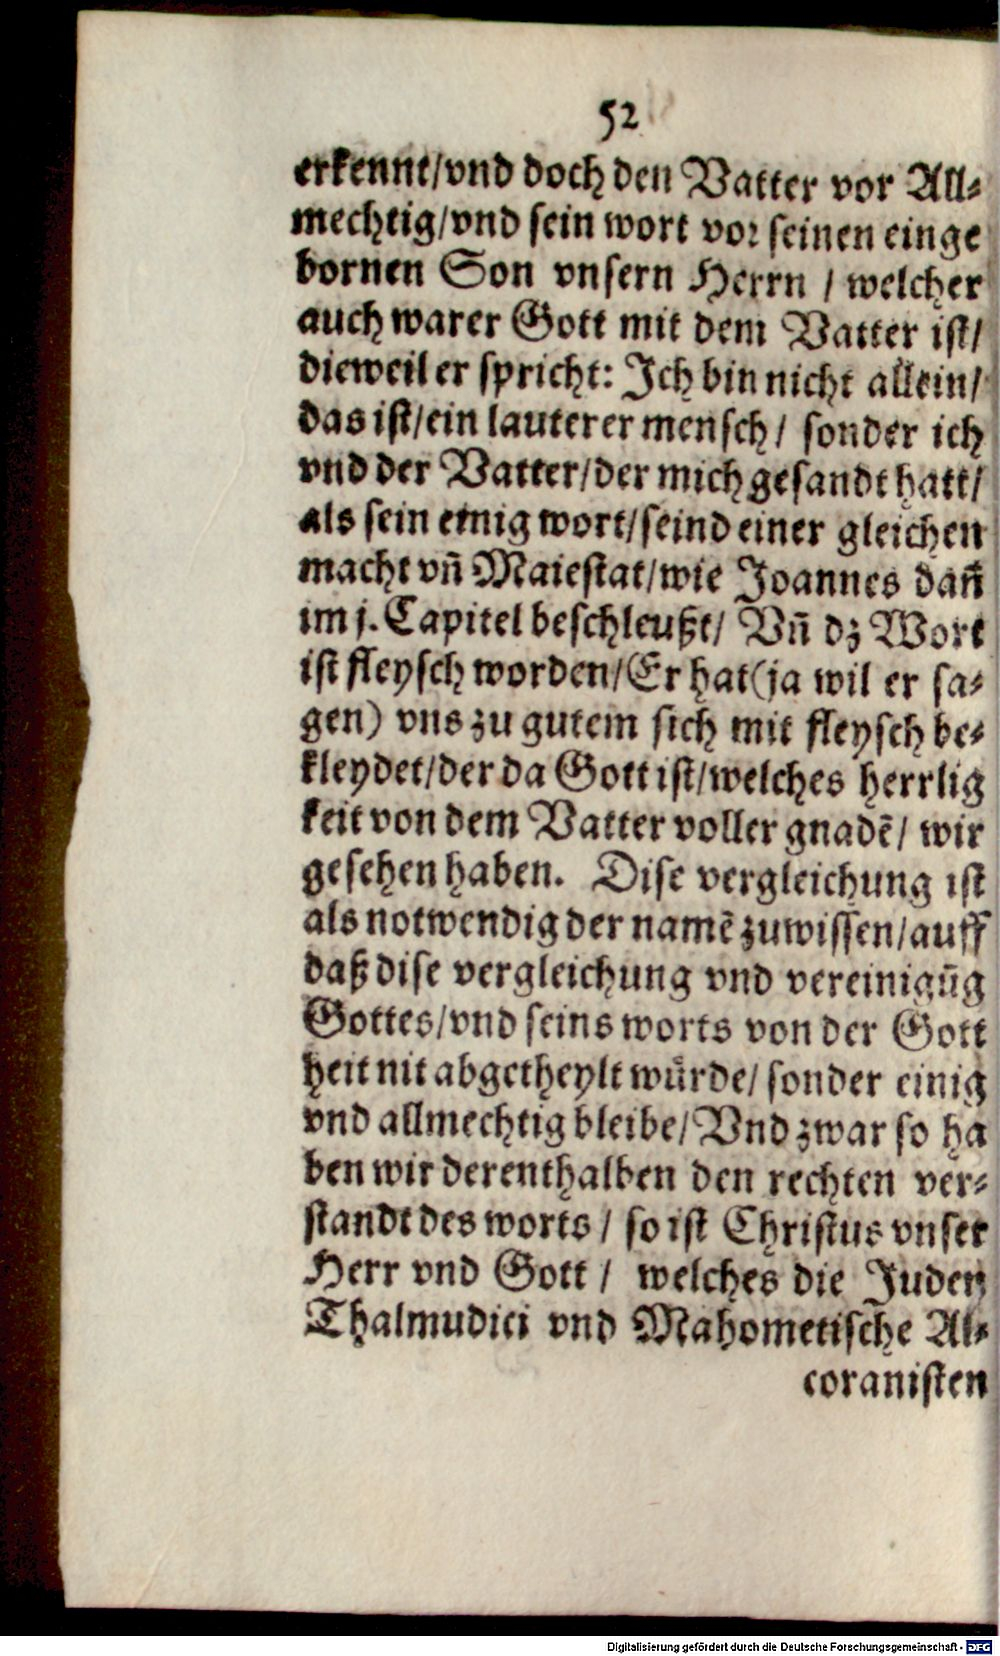 52
erkennt/vnd doch den Vatter vor All-
mechtig/vnd sein wort vor seinen einge
bornen Son vnsern Herrn / welcher
auch warer Gott mit dem Vatter ist/
dieweil er spricht: Ich bin nicht allein/
das ist/ein lauterer mensch/ sonder ich
vnd der Vatter/der mich gesandt hatt/
als sein einig wort/seind einer gleichen
macht vñ Maiestat/wie Joannes dañ
im j. Capitel beschleußt/ Vñ dz Wort
ist fleysch worden/Er hat(ja wil er sa-
gen) vns zu gutem sich mit fleysch be-
kleydet/der da Gott ist/welches herrlig
keit von dem Vatter voller gnadẽ/ wir
gesehen haben. Dise vergleichung ist
als notwendig der namẽ zuwissen/auff
daß dise vergleichung vnd vereinigũg
Gottes/vnd seins worts von der Gott
heit nit abgetheylt würde/ sonder einig
vnd allmechtig bleibe/Vnd zwar so ha
ben wir derenthalben den rechten ver-
standt des worts / so ist Christus vnser
Herr vnd Gott / welches die Juden
Thalmudici vnd Mahometische Al-
coranisten
Digitalisierung gefördert durch die Deutsche Forschungsgemeinschaft - DFG